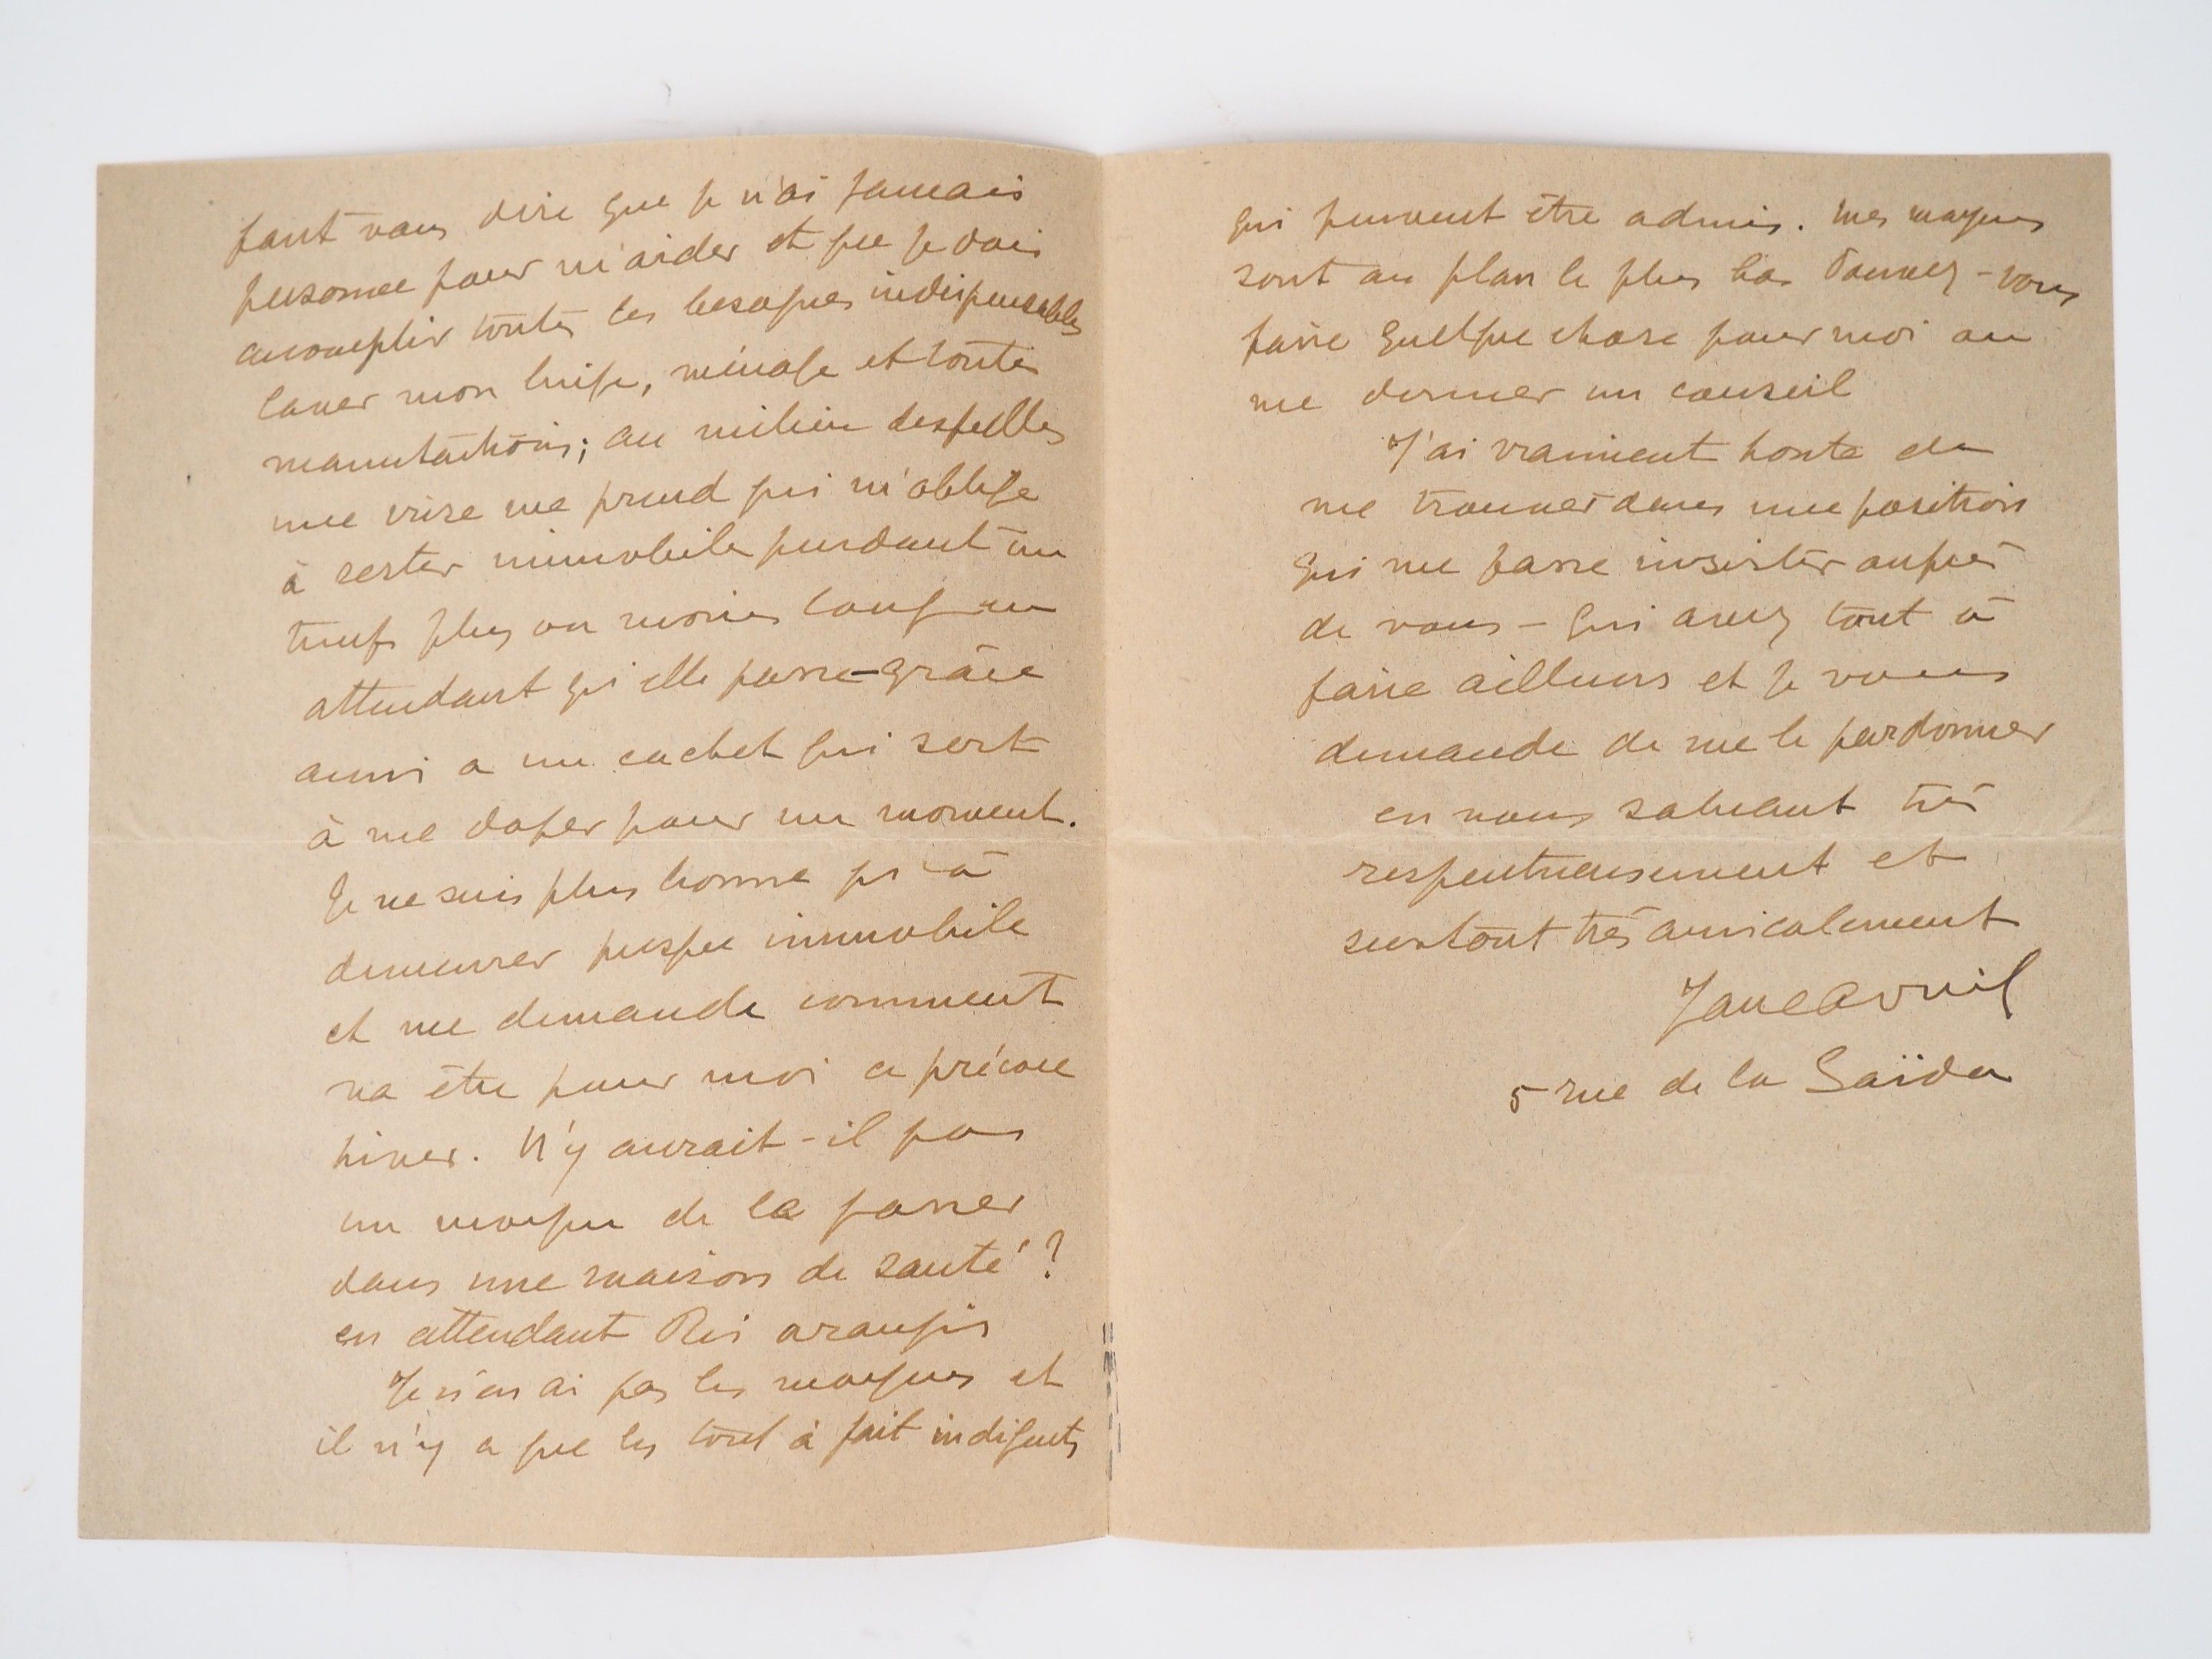 faut vous dire que je n'ai jamais
personne pour m'aider et que je dois
accomplir toutes les besognes indispensables
laver mon linge, ménage et toutes
manutations; au milieu desquelles
une crise me prend qui m'oblige
à rester immobile pendant un
temps plus ou moins long en
attendant qu'elle passe - grâce
aussi a un cachet qui sert
à me doper pour un moment.
Je ne suis plus bonne qu'à
demeurer presque immobile
et me demande comment
va être pour moi ce précoce
hiver. N'y aurait-il pas
un moyen de le passer
dans une maison de santé ?
en attendant Ris arangis
Je n'en ai pas les moyens et
il n'y a que les tout à fait indigents
qui peuvent être admis. Mes moyens
sont au plan le plus bas Pouvez-vous
faire quelque chose pour moi ou
me donner un conseil
J'ai vraiment honte de
me trouver dans une position
qui me fasse insister auprès
de vous - qui avez tout à
faire ailleurs et je vous
demande de me le pardonner
en vous saluant très
respectueusement et
surtout très amicalement
Jane Avril
5 rue de la Saïda